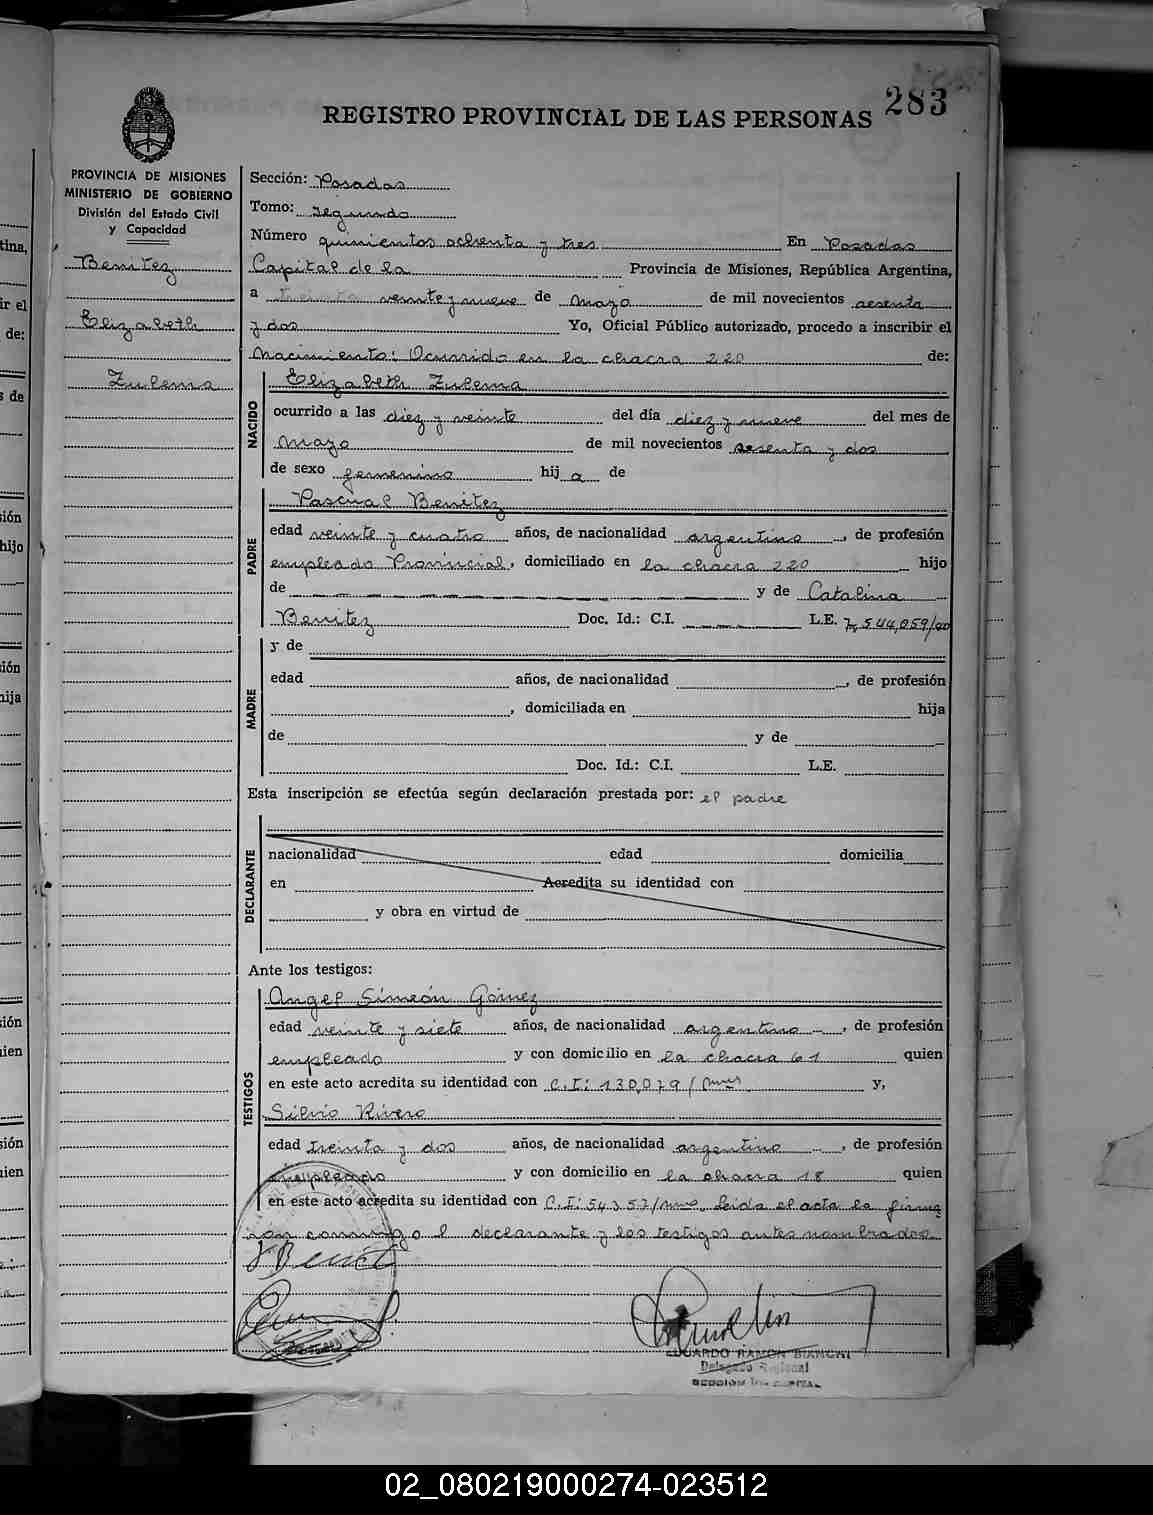 283
REGISTRO PROVINCIAL DE LAS PERSONAS
PROVINCIA DE MISIONES
MINISTERIO DE GOBIERNO
División del Estado Civil
y Capacidad
Benitez
Elizabeth
Zulema
Sección: Posadas
Tomo: segundo
Número quinientos ochenta y tres En Posadas
Capital de la Provincia de Misiones, República Argentina,
a treinta veinte y nueve de mayo de mil novecientos sesenta
y dos Yo, Oficial Público autorizado, procedo a inscribir el
Nacimiento: Ocurrido en la chacra 220 de:
NACIDO
Elizabeth Zulema
ocurrido a las diez y veinte del día diez y nueve del mes de
mayo de mil novecientos sesenta y dos
de sexo femenino hij a de
PADRE
Pascual Benitez
edad veinte y cuatro años, de nacionalidad argentino, de profesión
empleado Provincial, domiciliado en la chacra 220 hijo
de y de Catalina
Benitez Doc. Id.: C.I. L.E. 7,544,059/
MADRE
y de
edad años, de nacionalidad , de profesión
, domiciliada en hija
de y de
Doc. Id.: C.I. L.E.
Esta inscripción se efectúa según declaración prestada por: el padre
DECLARANTE
nacionalidad edad domicilia
en Acredita su identidad con
y obra en virtud de
Ante los testigos:
TESTIGOS
Angel Simeón Gómez
edad veinte y siete años, de nacionalidad argentino, de profesión
empleado y con domicilio en la chacra 61 quien
en este acto acredita su identidad con C.I: 130,079/mnes y,
Silvio Rivero
edad treinta y dos años, de nacionalidad argentino, de profesión
empleado y con domicilio en la chacra 18 quien
en este acto acredita su identidad con C.I: leida el acta la firma
con conmigo el declarante y los testigos antes nombrados.
EDUARDO RAMON BIANCHI
Delegado Regional
SECCION
02_080219000274-023512